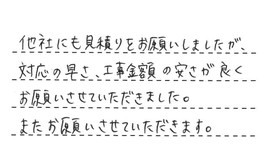 他社にも見積りをお願いしましたが、
対応の早さ、工事金額の安さが良く
お願いさせていただきました。
またお願いさせていただきます。